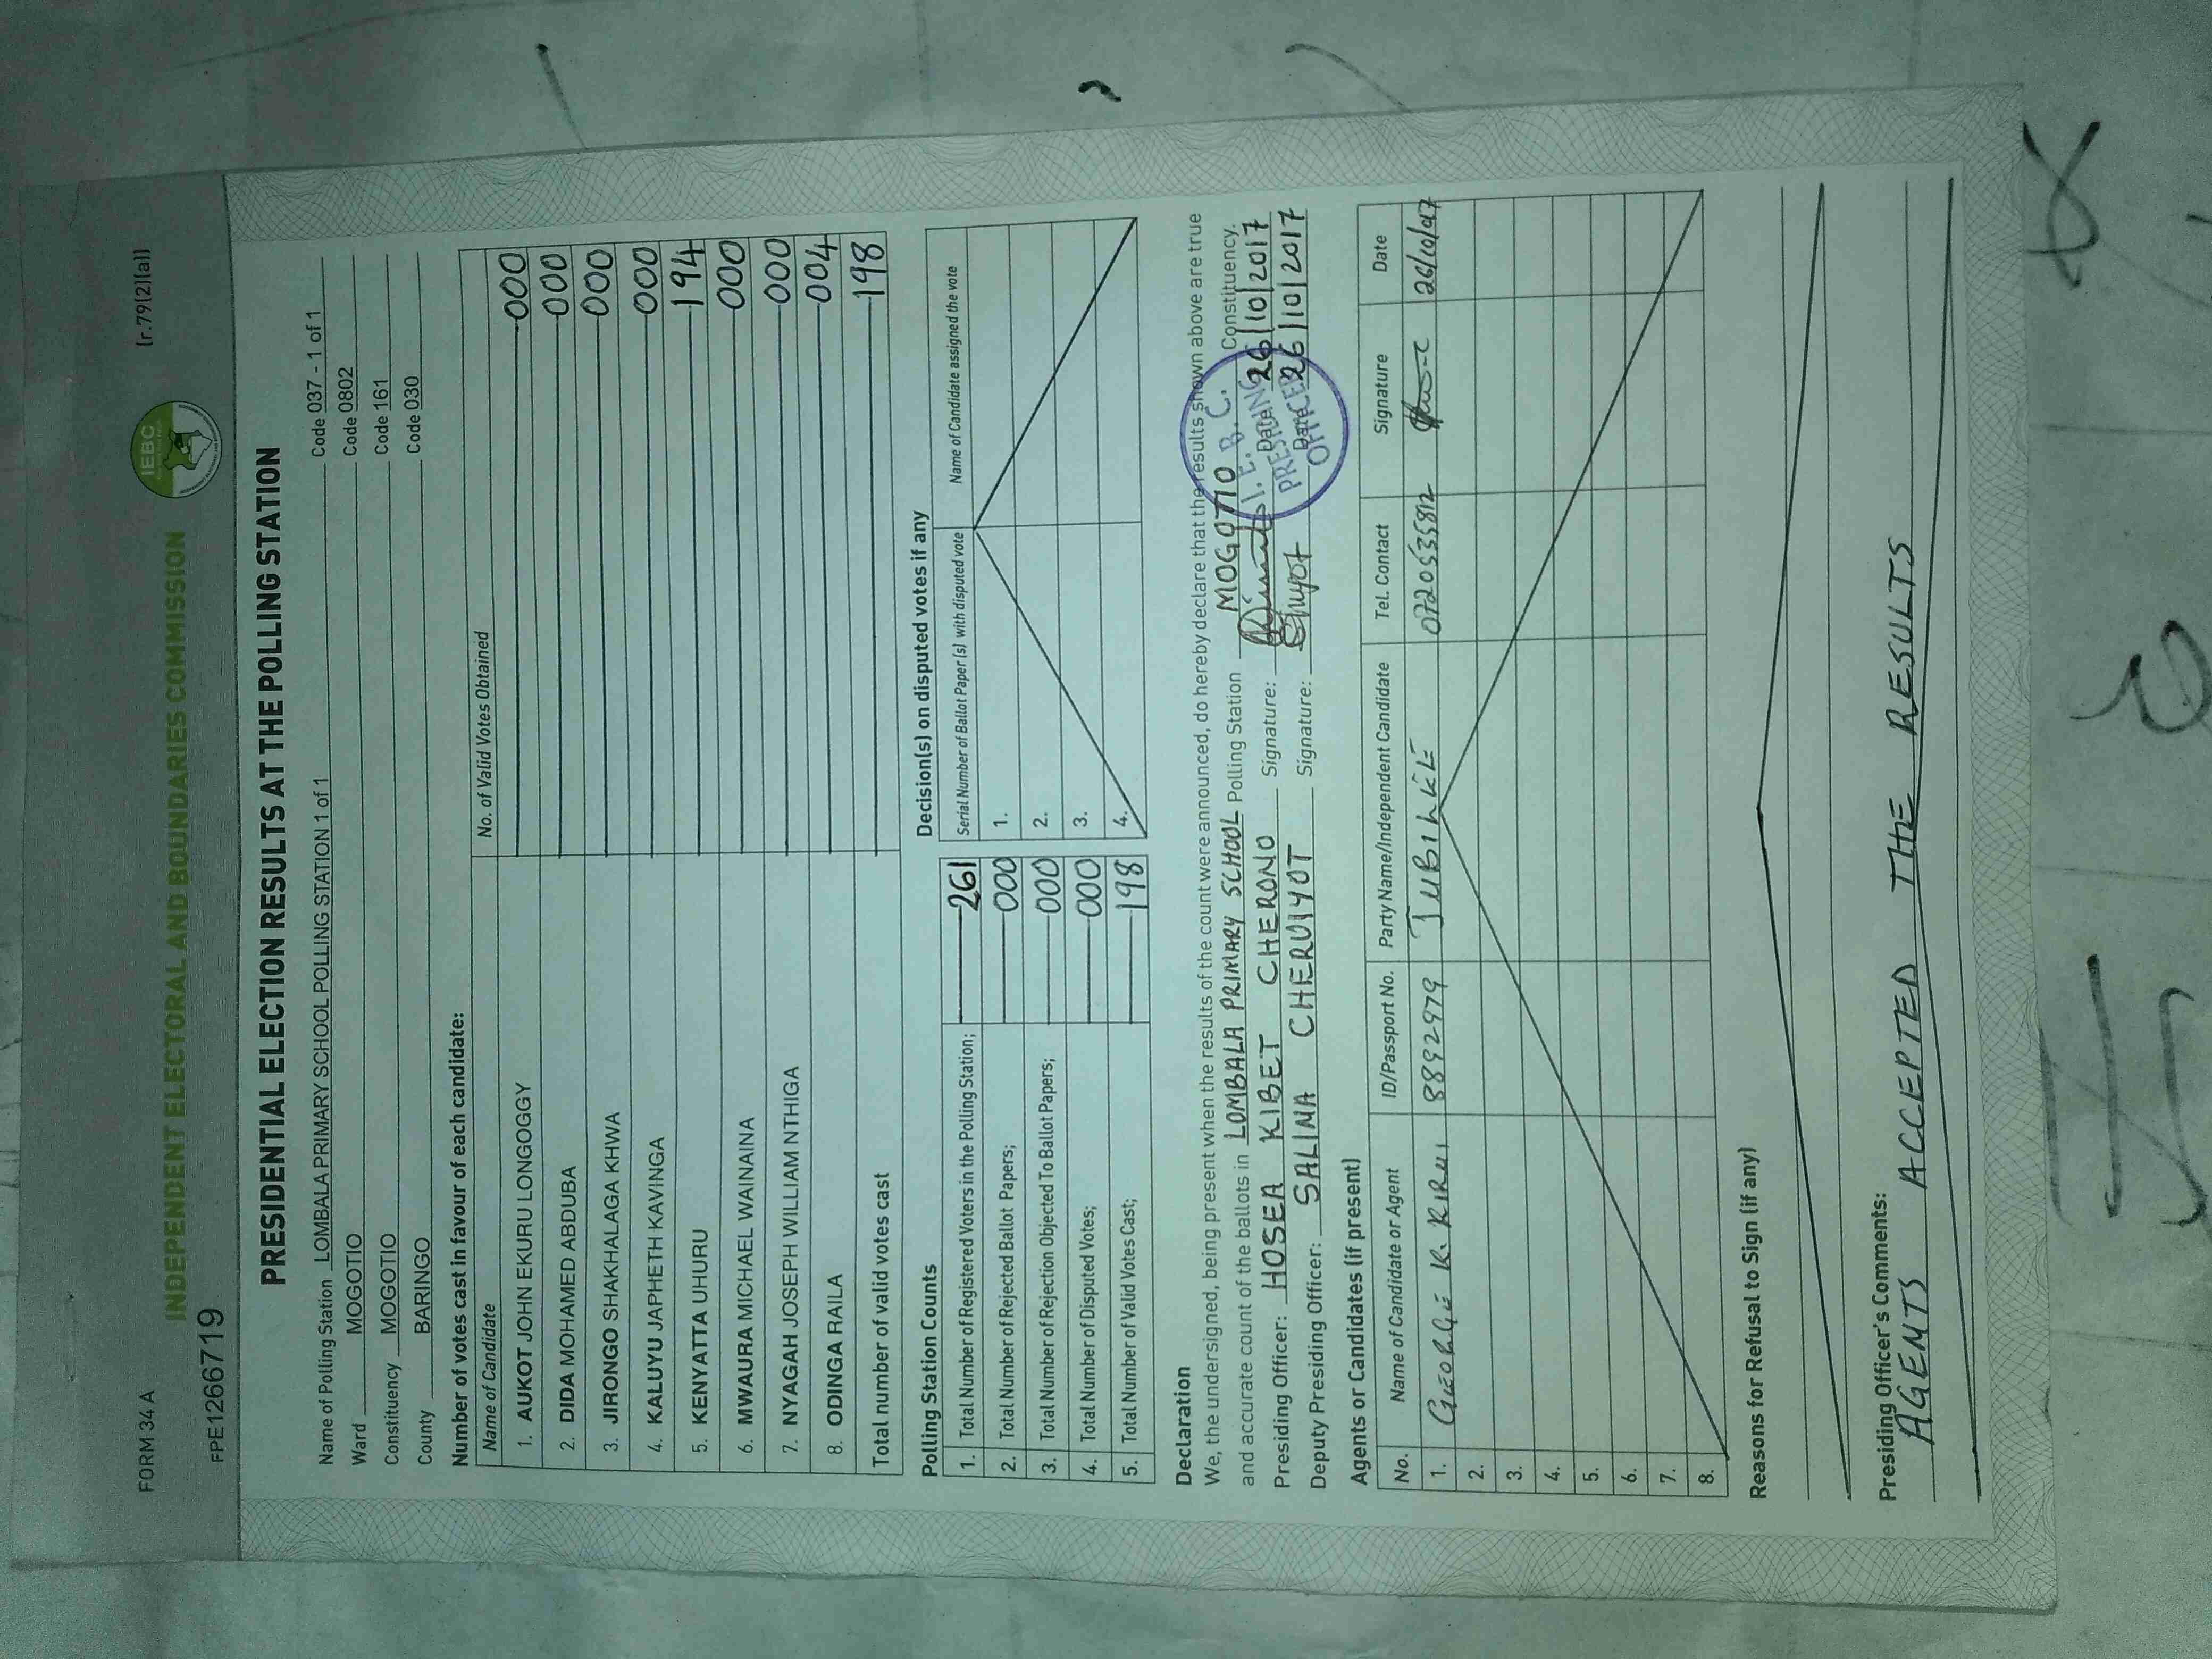 FORM 34 A
(r.79(2)(a))
IEBC
INDEPENDENT ELECTORAL AND BOUNDARIES COMMISSION
FPE1266719
PRESIDENTIAL ELECTION RESULTS AT THE POLLING STATION
Name of Polling Station LOMBALA PRIMARY SCHOOL POLLING STATION 1 of 1 Code 037 - 1 of 1
Ward MOGOTIO Code 0802
Constituency MOGOTIO Code 161
County BARINGO Code 030
Number of votes cast in favour of each candidate:
Name of Candidate No. of Valid Votes Obtained
1. AUKOT JOHN EKURU LONGOGGY 000
2. DIDA MOHAMED ABDUBA 000
3. JIRONGO SHAKHALAGA KHWA 000
4. KALUYU JAPHETH KAVINGA 000
5. KENYATTA UHURU 194
6. MWAURA MICHAEL WAINAINA 000
7. NYAGAH JOSEPH WILLIAM NTHIGA 000
8. ODINGA RAILA 004
Total number of valid votes cast 198
Polling Station Counts
1. Total Number of Registered Voters in the Polling Station; 261
2. Total Number of Rejected Ballot Papers; 000
3. Total Number of Rejection Objected To Ballot Papers; 000
4. Total Number of Disputed Votes; 000
5. Total Number of Valid Votes Cast; 198
Decision(s) on disputed votes if any
Serial Number of Ballot Paper (s) with disputed vote Name of Candidate assigned the vote
1.
2.
3.
4.
Declaration
We, the undersigned, being present when the results of the count were announced, do hereby declare that the results shown above are true
and accurate count of the ballots in LOMBALA PRIMARY SCHOOL Polling Station MOGOTIO Constituency.
Presiding Officer: HOSEA KIBET CHERONO Signature: Date 26/10/2017
Deputy Presiding Officer: SALINA CHERUIYOT Signature: Date 26/10/2017
I.E.B.C.
PRESIDING
OFFICER
Agents or Candidates (if present)
No. Name of Candidate or Agent ID/Passport No. Party Name/Independent Candidate Tel. Contact Signature Date
1. GEORGE K. KIRUI 8892979 JUBILEE 0720535812 26/10/017
2.
3.
4.
5.
6.
7.
8.
Reasons for Refusal to Sign (if any)
Presiding Officer's Comments:
AGENTS ACCEPTED THE RESULTS